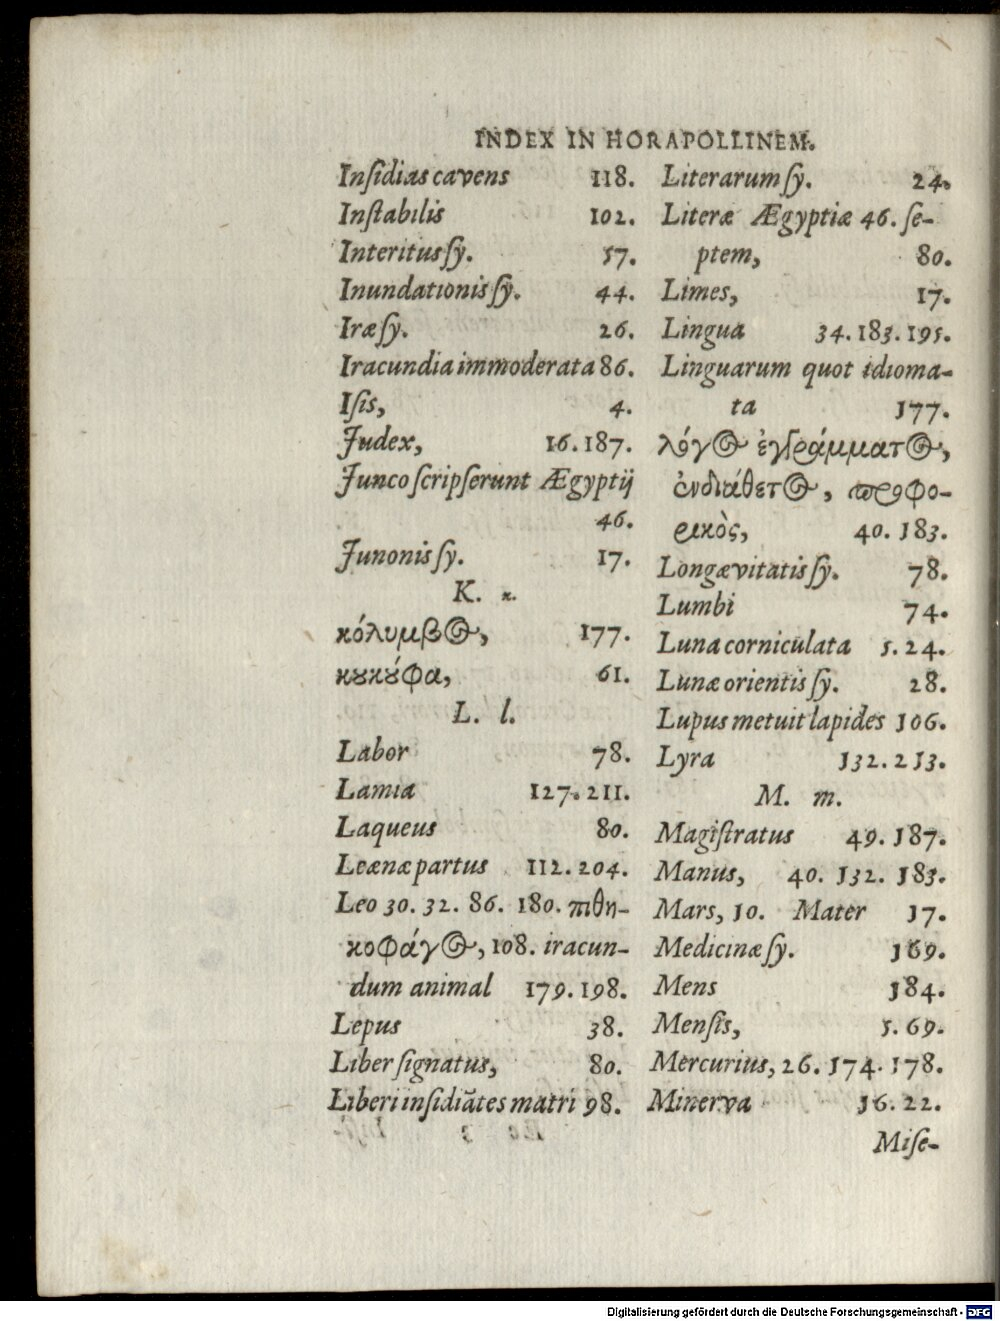 INDEX IN HORAPOLLINEM.
Inſidias cavens 118.
Inſtabilis 102.
Interitus ſy. 57.
Inundationis ſy. 44.
Iræ ſy. 26.
Iracundia immoderata 86.
Iſis, 4.
Judex, 16. 187.
Junco ſcripſerunt Ægyptij
46.
Junonis ſy. 17.
K. κ.
κόλυμβος, 177.
κȣκȣ́φα, 61.
L. l.
Labor 78.
Lamia 127. 211.
Laqueus 80.
Leænæ partus 112. 204.
Leo 30. 32. 86. 180. πιθη-
κοφάγος, 108. iracun-
dum animal 179. 198.
Lepus 38.
Liber ſignatus, 80.
Liberi inſidiãtes matri 98.
Literarum ſy. 24.
Literæ Ægyptiæ 46. ſe-
ptem, 80.
Limes, 17.
Lingua 34. 183. 195.
Linguarum quot idioma-
ta 177.
λόγος ἐγγράμματος,
ἐνδιάθετος, προφο-
ρικὸς, 40. 183.
Longævitatis ſy. 78.
Lumbi 74.
Luna corniculata 5. 24.
Lunæ orientis ſy. 28.
Lupus metuit lapides 106.
Lyra 132. 213.
M. m.
Magiſtratus 49. 187.
Manus, 40. 132. 183.
Mars, 10. Mater 17.
Medicinæ ſy. 169.
Mens 184.
Menſis, 5. 69.
Mercurius, 26. 174. 178.
Minerva 16. 22.
Miſe-
Digitalisierung gefördert durch die Deutsche Forschungsgemeinschaft - DFG